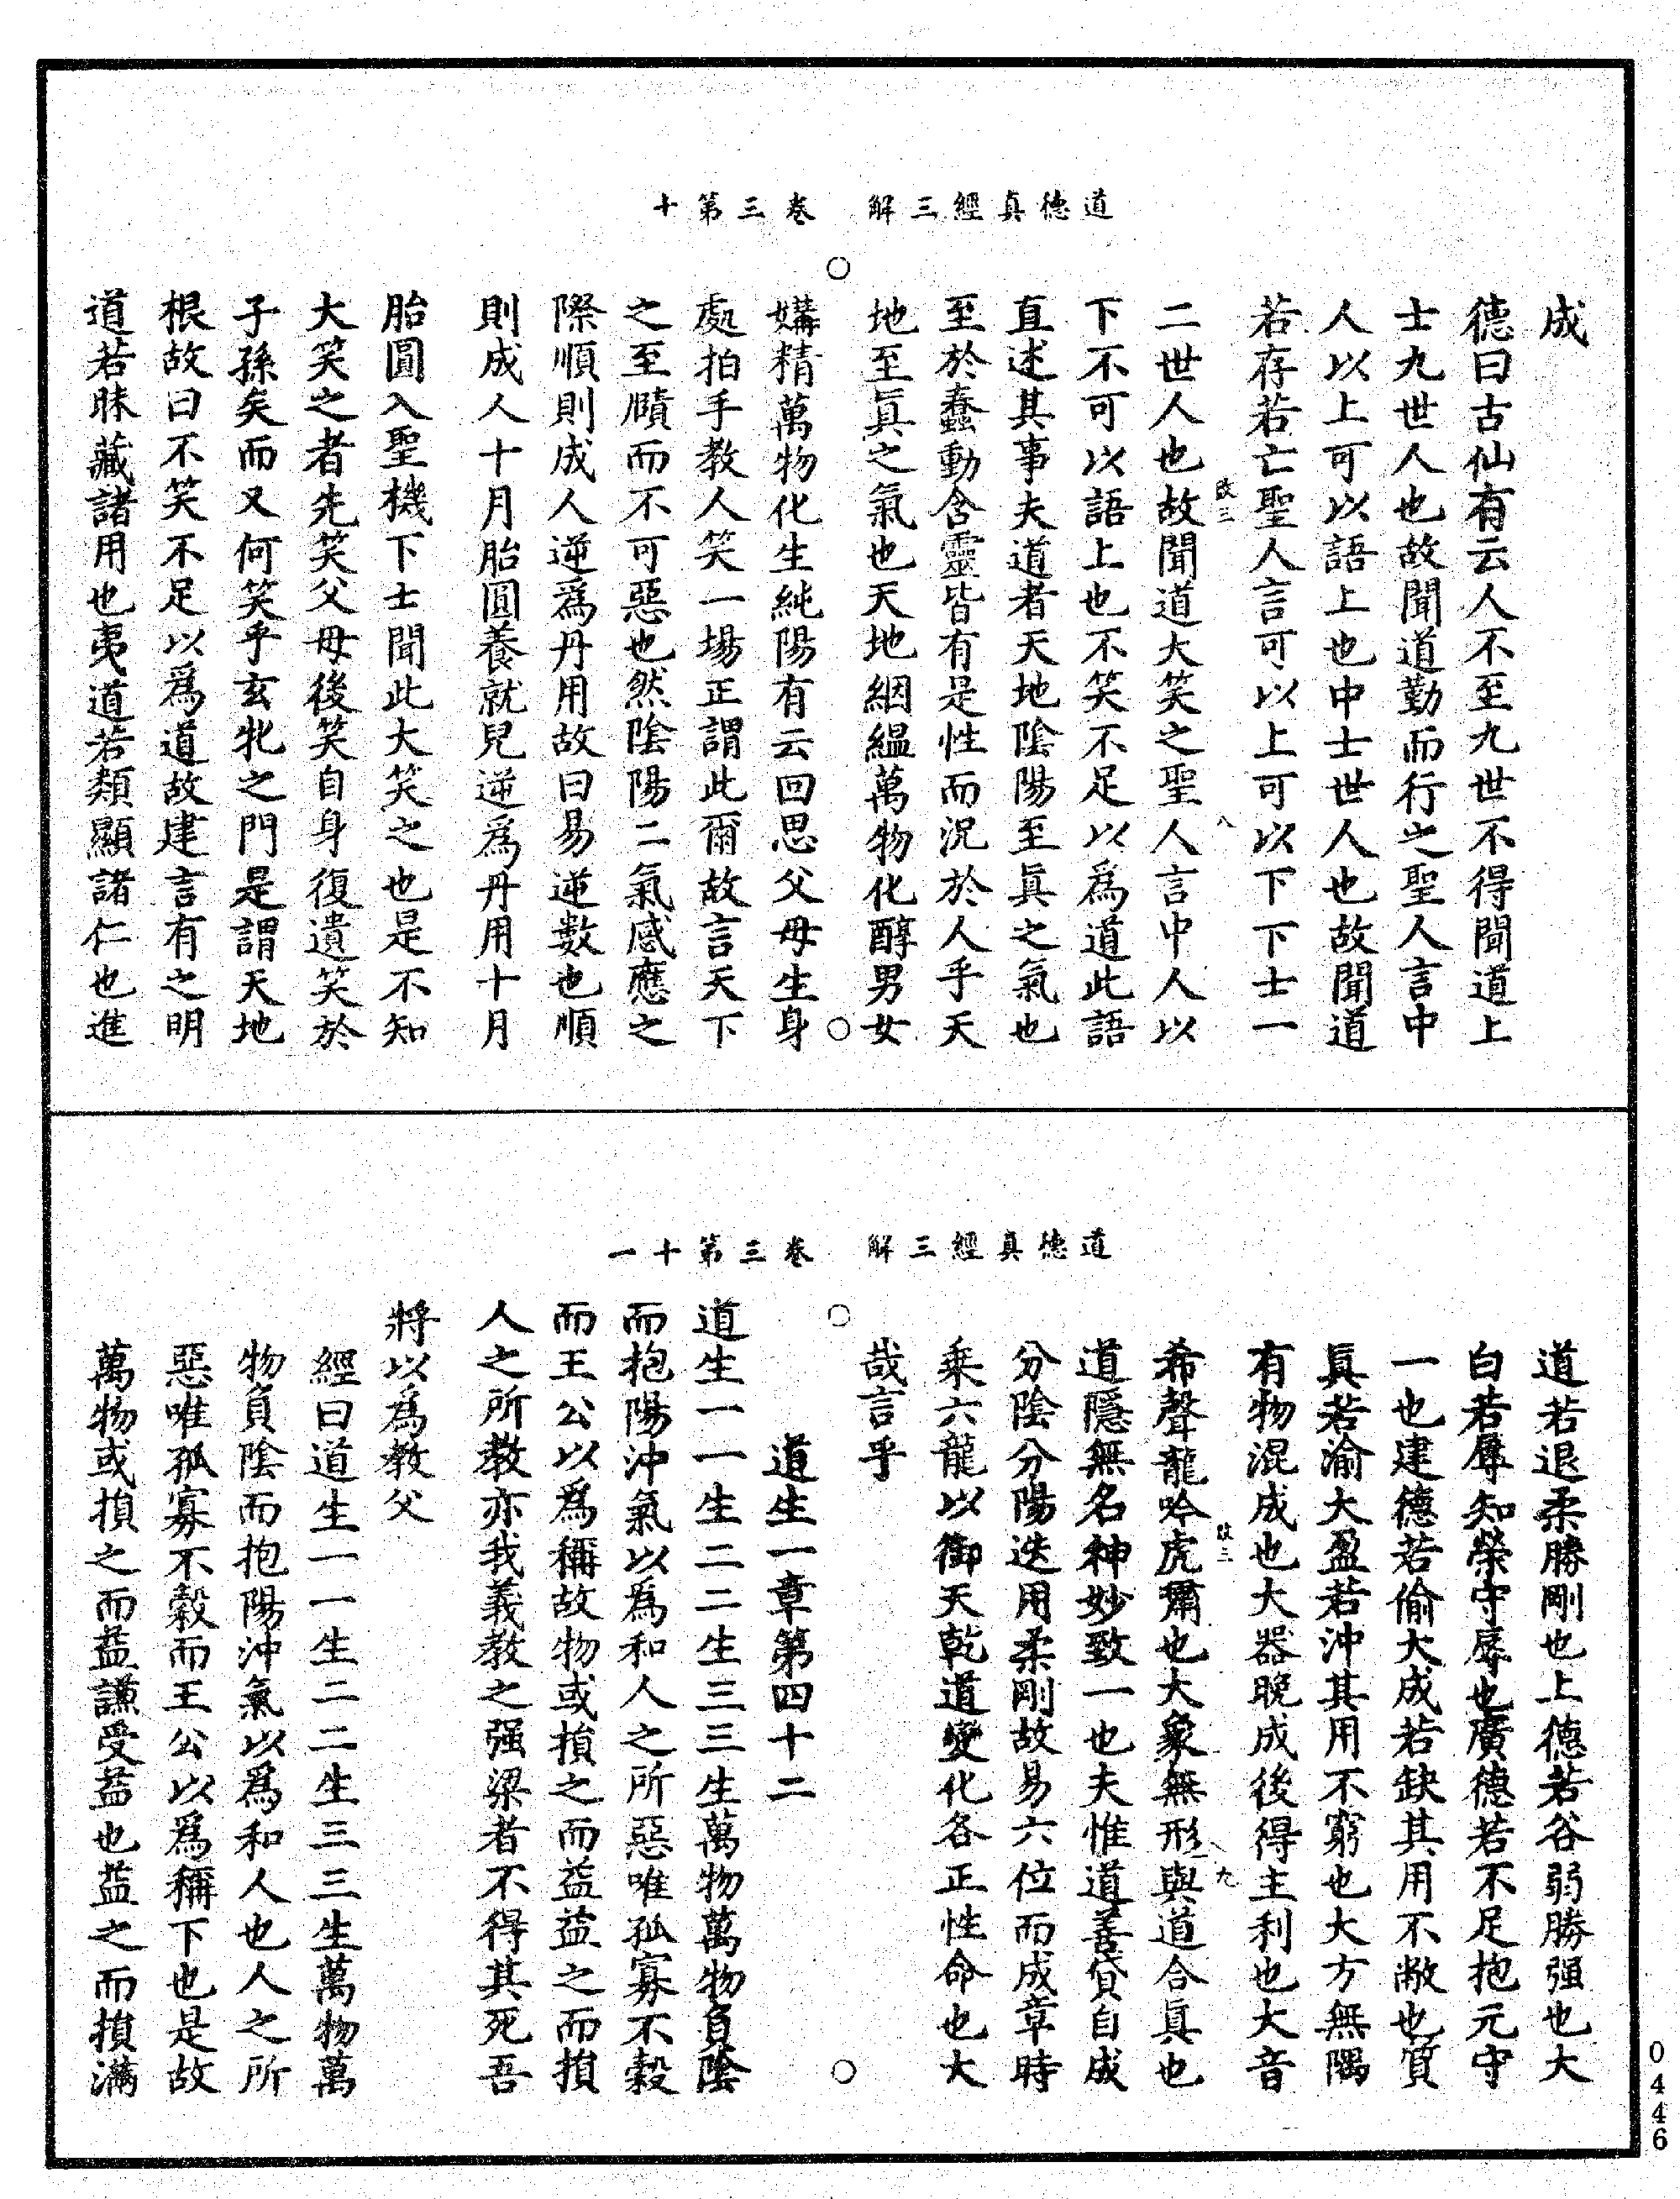 道德真經三解　卷三第十
成
德曰古仙有云人不至九世不得聞道上
士九世人也故聞道勤而行之聖人言中
人以上可以語上也中士世人也故聞道
若存若亡聖人言可以上可以下下士一
改三　八
二世人也故聞道大笑之聖人言中人以
下不可以語上也不笑不足以爲道此語
直述其事夫道者天地陰陽至眞之氣也
至於蠢動含靈皆有是性而況於人乎天
地至眞之氣也天地絪縕萬物化醇男女
媾精萬物化生純陽有云回思父母生身
處拍手教人笑一場正謂此爾故言天下
之至賾而不可惡也然陰陽二氣感應之
際順則成人逆爲丹用故曰易逆數也順
則成人十月胎圓養就兒逆爲丹用十月
胎圓入聖機下士聞此大笑之也是不知
大笑之者先笑父母後笑自身復遺笑於
子孫矣而又何笑乎玄牝之門是謂天地
根故曰不笑不足以爲道故建言有之明
道若昧藏諸用也夷道若類顯諸仁也進
道德真經三解　卷三第十一
道若退柔勝剛也上德若谷弱勝强也大
白若辱知榮守辱也廣德若不足抱元守
一也建德若偷大成若缺其用不敝也質
眞若渝大盈若沖其用不窮也大方無隅
有物混成也大器晚成後得主利也大音
改三　九
希聲龍吟虎嘯也大象無形與道合眞也
道隱無名神妙致一也夫惟道善貸自成
分陰分陽迭用柔剛故易六位而成章時
乘六龍以御天乾道變化各正性命也大
哉言乎
道生一章第四十二
道生一一生二二生三三生萬物萬物負陰
而抱陽沖氣以爲和人之所惡唯孤寡不穀
而王公以爲稱故物或損之而益益之而損
人之所教亦我義教之强梁者不得其死吾
將以爲教父
經曰道生一一生二二生三三生萬物萬
物負陰而抱陽沖氣以爲和人也人之所
惡唯孤寡不穀而王公以爲稱下也是故
萬物或損之而益謙受益也益之而損滿
0446